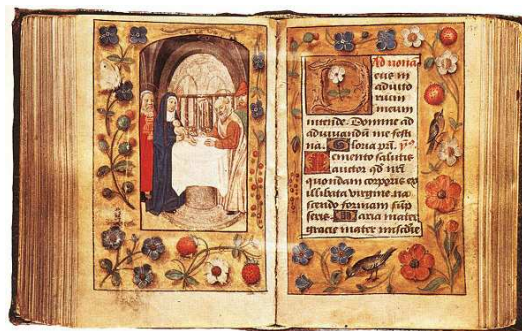 Ad nona
eus in
adiuto
rium
meum
intende. Domine ad
adiuuandū me festi
na. Gloria pr̄i.
Memento salutis
auctor qd nr̄i
quondam corporis ex
illibata virgine na
scendo formam sūp
seris. Maria mater
gracie mater mīcdie